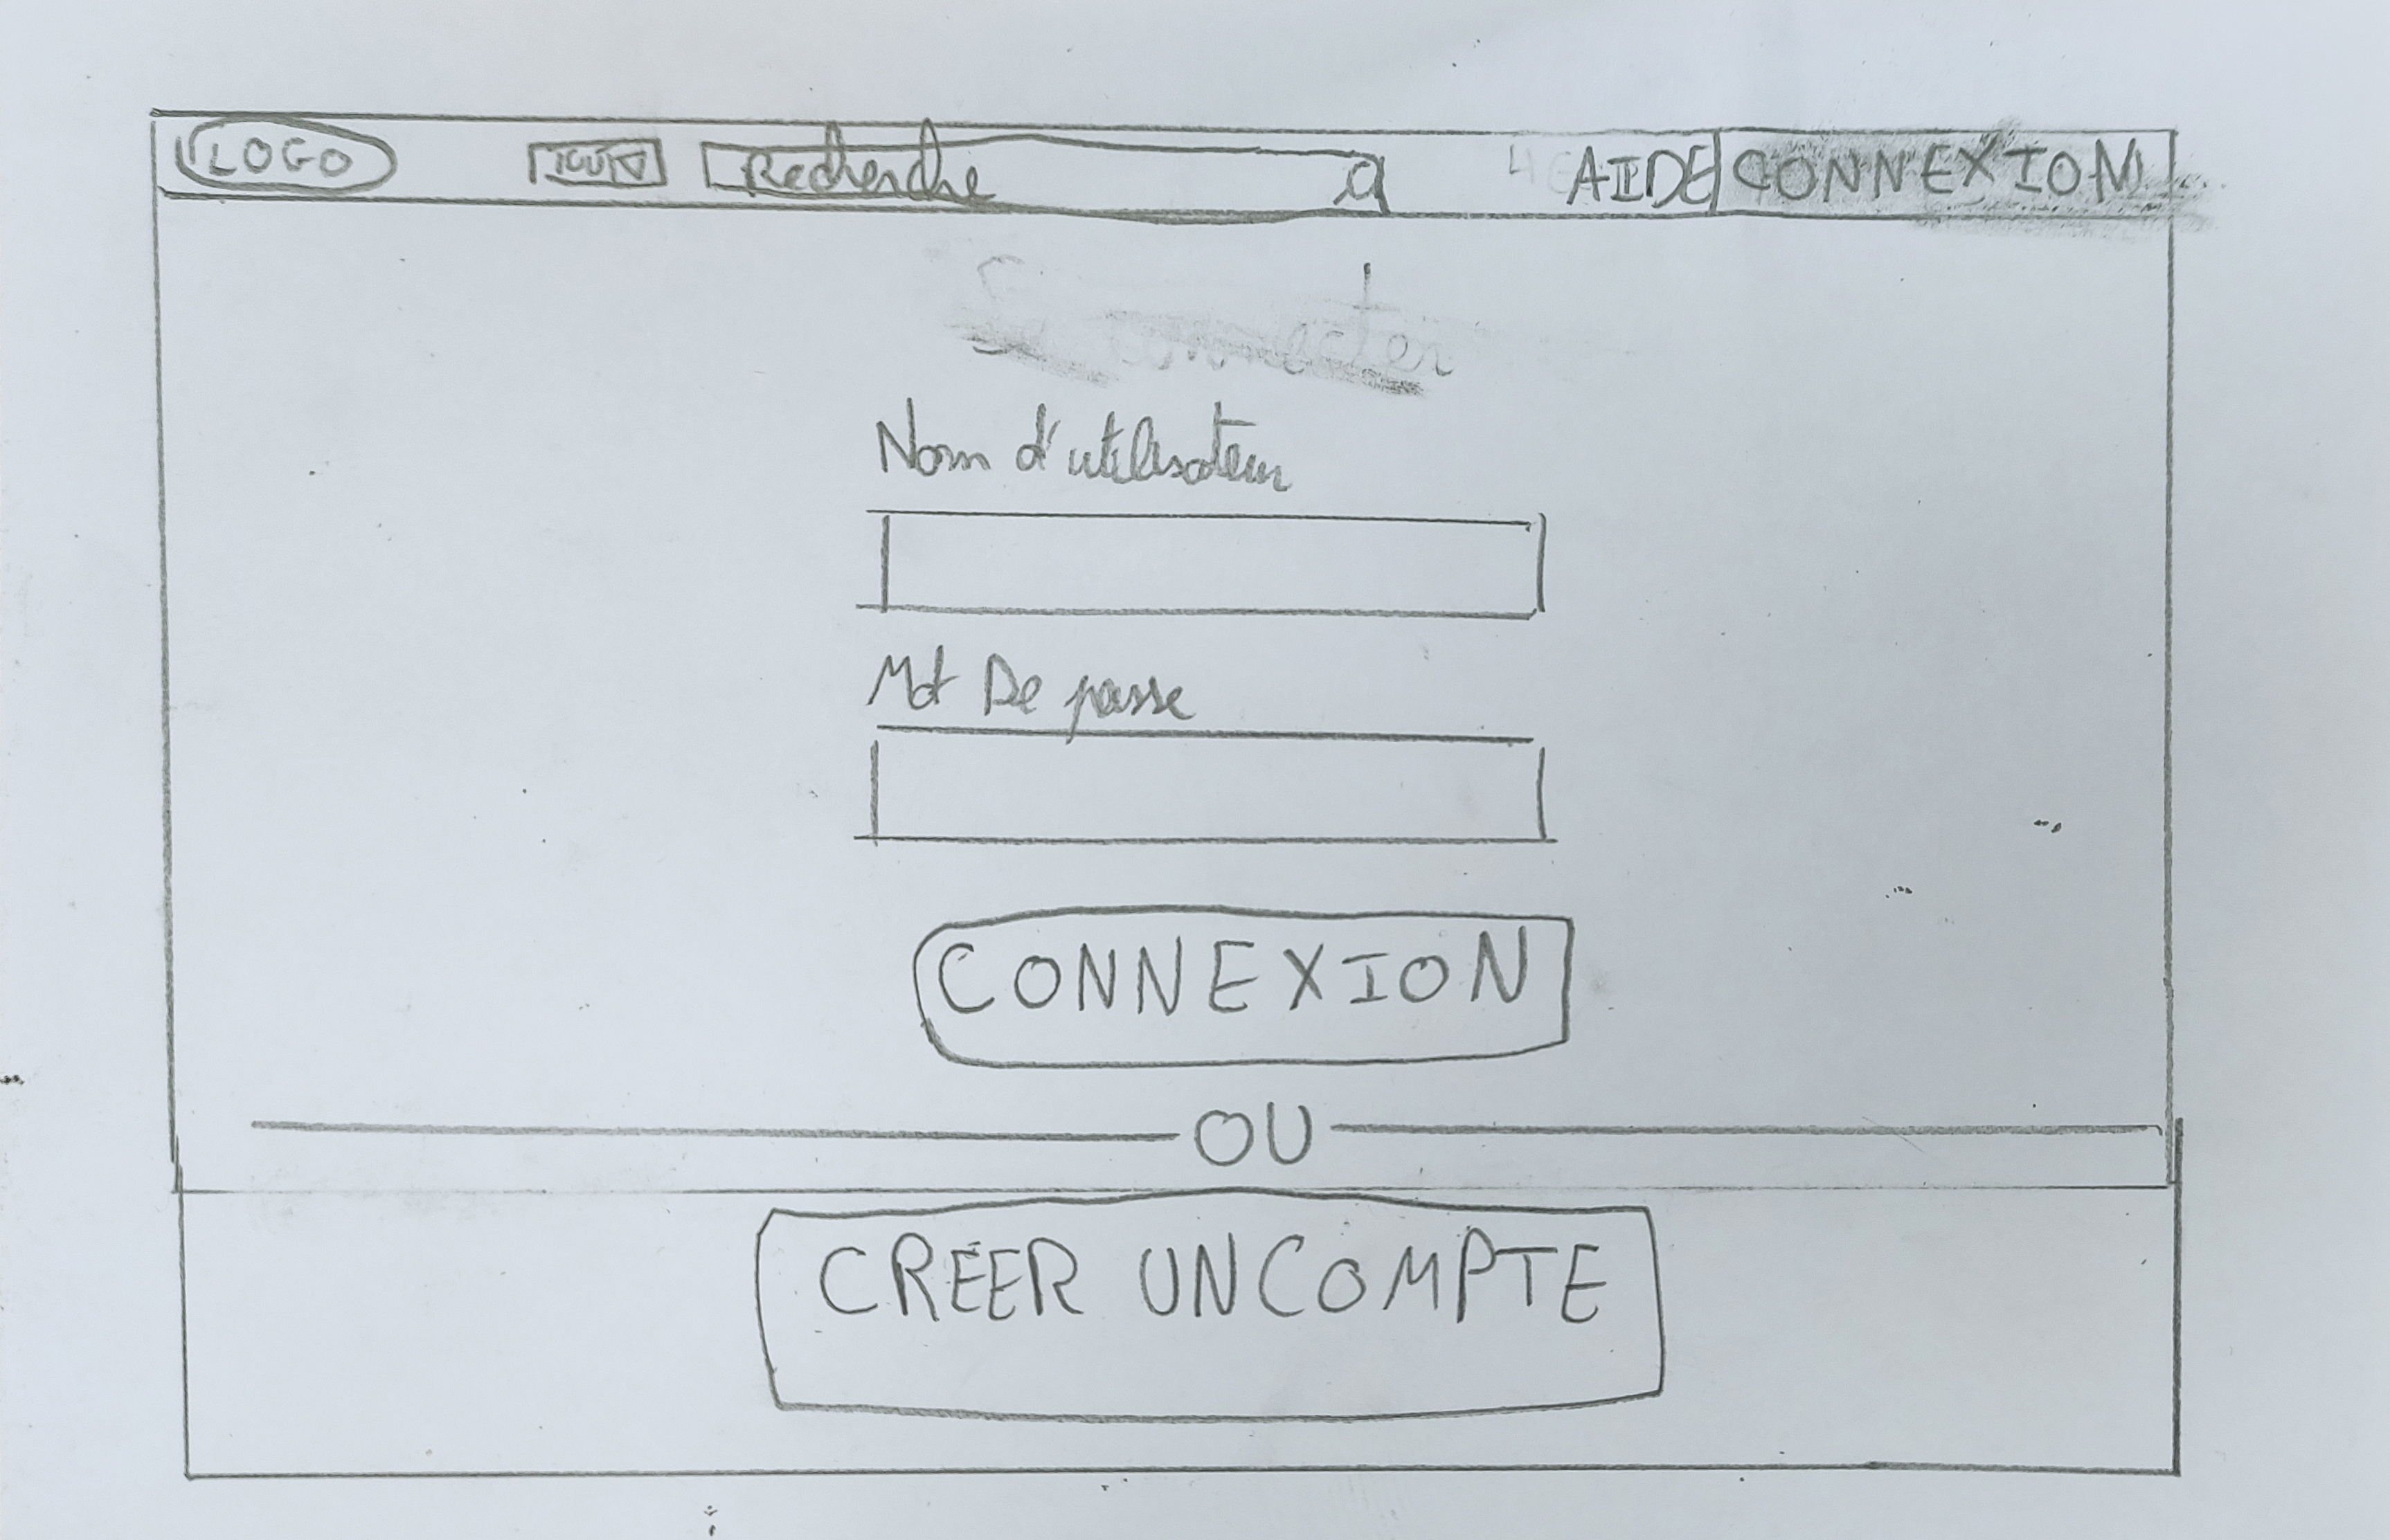 LOGO TOUT Recherche AIDE CONNEXION
Se connecter
Nom d'utilisateur
Mot De passe
CONNEXION
OU
CREER UN COMPTE